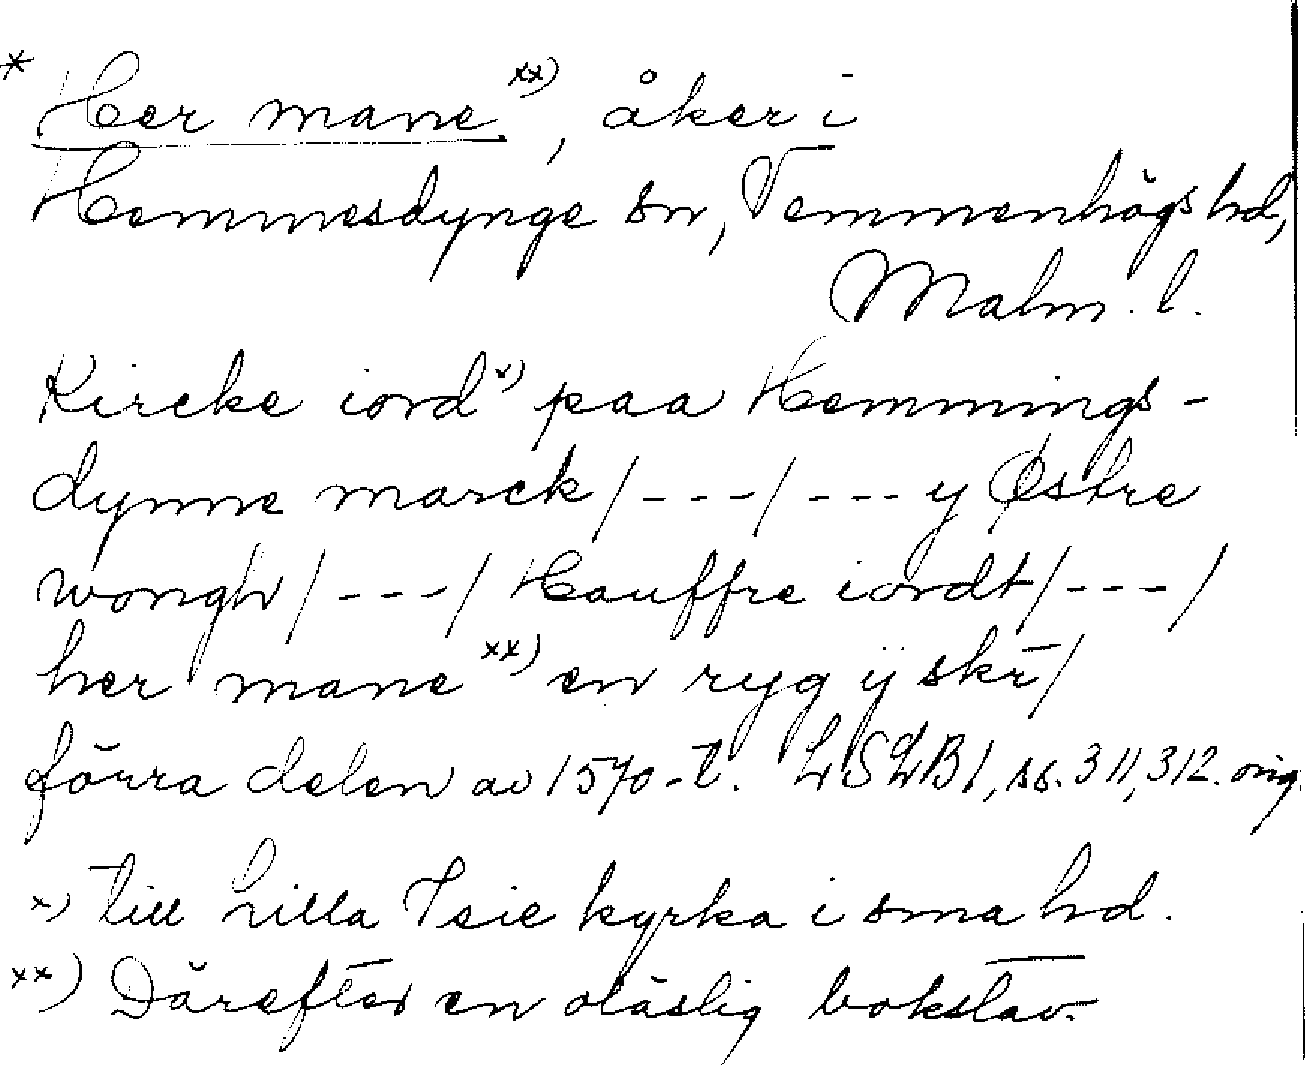 * Her mane xx), åker i
Hemmesdynge sn, Vemmenhögs hd,
Malm. l.
Kircke iord x) paa Hemmings-
dynne marck /---/ --- y Østre
wongh /---/ Hauffre iordt /---/
her mane xx) en ryg ij skr/
förra delen av 1570-t. LSLB I, ss. 311, 312. orig.
x) till Lilla Isie kyrka i sma hd.
xx) Därefter en oläslig bokstav.